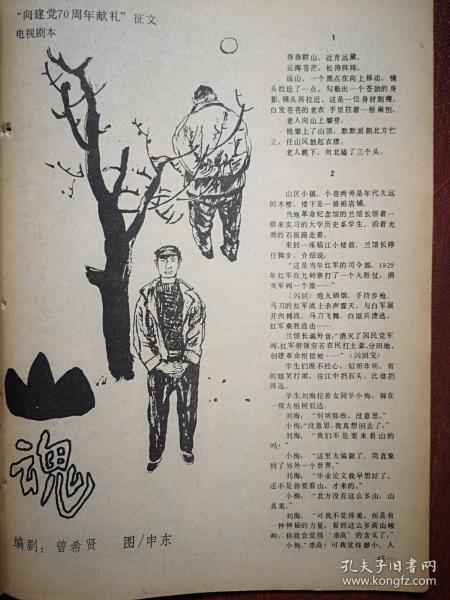 “向建党70周年献礼”征文
电视剧本
魂
编剧：曾希贤　图/申东
1
莽莽群山，近青远黛。
云海苍茫，松涛阵阵。
远山，一个黑点在向上移动，镜
头拉近了一点，勾勒出一个苍劲的身
影。镜头再拉近，这是一位身材削瘦，
白发苍苍的老农，手里拄着一根
老人向山上攀登。
他攀上了山顶，默默面朝北方伫
立，任山风鼓起衣襟。
老人跪下，向北磕了三个头。
2
山区小镇。小巷两旁是年代久远
的木楼，楼下是一排排店铺。
当地革命纪念馆的兰馆长领着一
群来实习的大学历史系学生，沿着光
滑的石板路走着。
来到一座临江小楼前，兰馆长停
住脚步，介绍说：
“这是当年红军的司令部。1929
年红军在九岭寨打了一个大胜仗，消
灭军阀一个旅……”
（闪回）炮火硝烟，手持步枪、
马刀的红军战士杀声震天，与白军展
开肉搏战。马刀飞舞。白匪兵溃逃，
红军乘胜追击……
兰馆长画外音：“消灭了国民党军
阀，红军带领穷苦农民打土豪、分田地，
创建革命根据地……”（闪回完）
学生们漫不经心，似听非听。有
的嬉笑打闹，往江中扔石头，比谁扔
得远。
学生刘海拉着女同学小梅，躲在
一棵大榕树后边。
刘海：“别听那些，没意思。”
小梅：“没意思，我真想回去了。”
刘海：“我们不是要来看山的
吗？”
小梅：“这里太偏僻了。简直象
到了另外一个世界。”
刘海：“毕业论文我早想好了。
还不是你要看山，才来的。”
小梅：“北方没有这么多山，山
真美。”
刘海：“可我不觉得美，而是有
一种神秘的力量，看到这么多高山峻
岭，你就会觉得‘崇高’的含义了。”
小梅：“崇高？可我觉得渺小，人
45
孔夫子旧书网